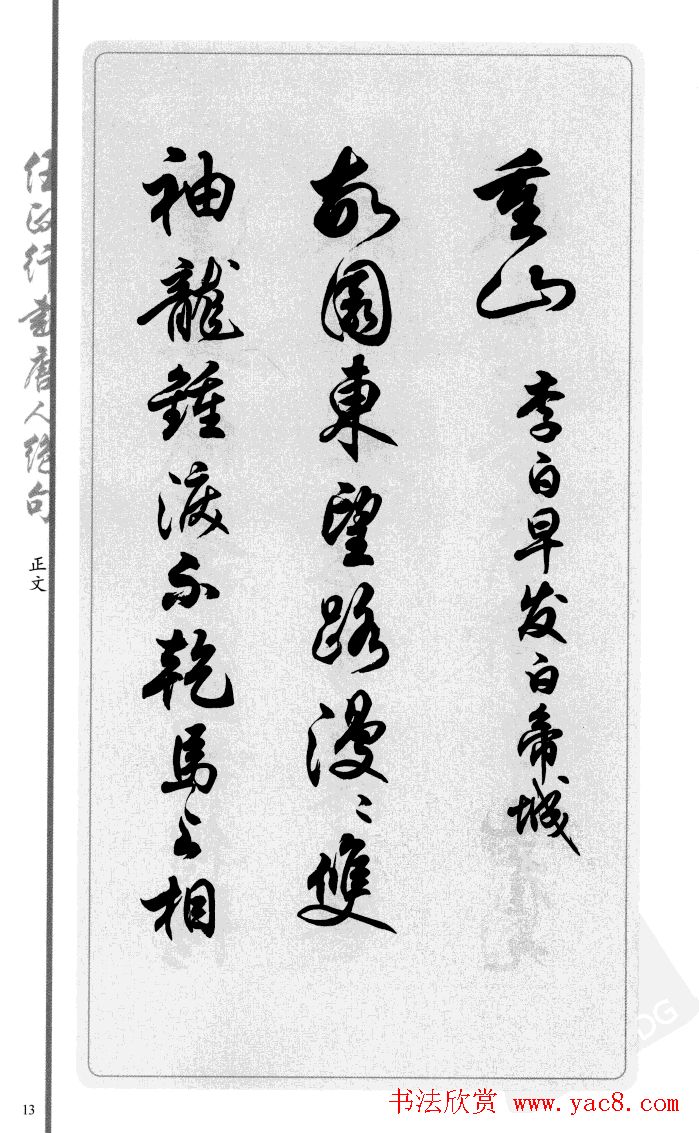 重山 李白早发白帝城
故園東望路漫〻雙
袖龍鍾淚不乾馬上相
任政行書唐人绝句
正文
13
书法欣赏 www.yac8.com
DG